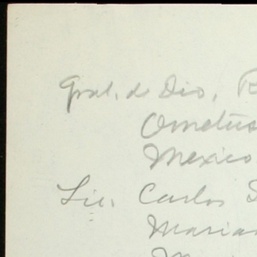 Gral. d Div.
Ometus
Mexico
Lic. Carlos
Marian